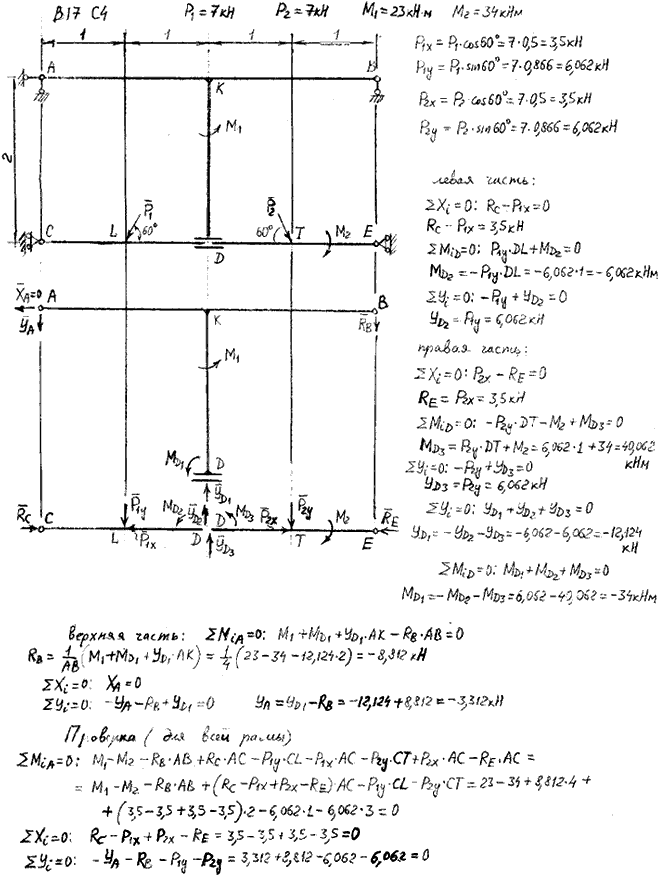 В17 С4 P₁=7кН P₂=7кН M₁=23кН·м M₂=34кНм
1 1 1 1
A B
K
M₁
2
P̄₁ P̄₂
C L 60° D 60° T M₂ E
X̄A=0 A B
ȲA K R̄B
M₁
MD1 D
ȲD1
R̄C C P̄1y MD2 ȲD2 D MD3 P̄2x P̄2y M₂ R̄E
L P̄1x D ȲD3 T E
P1x = P₁·cos60°=7·0,5=3,5кН
P1y = P₁·sin60°=7·0,866=6,062кН
P2x = P₂·cos60°=7·0,5=3,5кН
P2y = P₂·sin60°=7·0,866=6,062кН
левая часть:
ΣXi=0: RC-P1x=0
RC-P1x=3,5кН
ΣMiD=0: P1y·DL+MD2=0
MD2=-P1y·DL=-6,062·1=-6,062кНм
ΣYi=0: -P1y+YD2=0
YD2=P1y=6,062кН
правая часть:
ΣXi=0: P2x-RE=0
RE=P2x=3,5кН
ΣMiD=0: -P2y·DT-M₂+MD3=0
MD3=P2y·DT+M₂=6,062·1+34=40,062
кНм
ΣYi=0: -P2y+YD3=0
YD3=P2y=6,062кН
ΣYi=0: YD1+YD2+YD3=0
YD1=-YD2-YD3=-6,062-6,062=-12,124
кН
ΣMiD=0: MD1+MD2+MD3=0
MD1=-MD2-MD3=6,062-40,062=-34кНм
верхняя часть: ΣMiA=0: M₁+MD1+YD1·AK-RB·AB=0
RB=1/AB(M₁+MD1+YD1·AK)=1/4(23-34-12,124·2)=-8,812кН
ΣXi=0: XA=0
ΣYi=0: -YA-RB+YD1=0 YA=YD1-RB=-12,124+8,812=-3,312кН
Проверка (для всей рамы)
ΣMiA=0: M₁-M₂-RB·AB+RC·AC-P1y·CL-P1x·AC-P2y·CT+P2x·AC-RE·AC=
=M₁-M₂-RB·AB+(RC-P1x+P2x-RE)·AC-P1y·CL-P2y·CT=23-34+8,812·4+
+(3,5-3,5+3,5-3,5)·2-6,062·1-6,062·3=0
ΣXi=0: RC-P1x+P2x-RE=3,5-3,5+3,5-3,5=0
ΣYi=0: -YA-RB-P1y-P2y=3,312+8,812-6,062-6,062=0